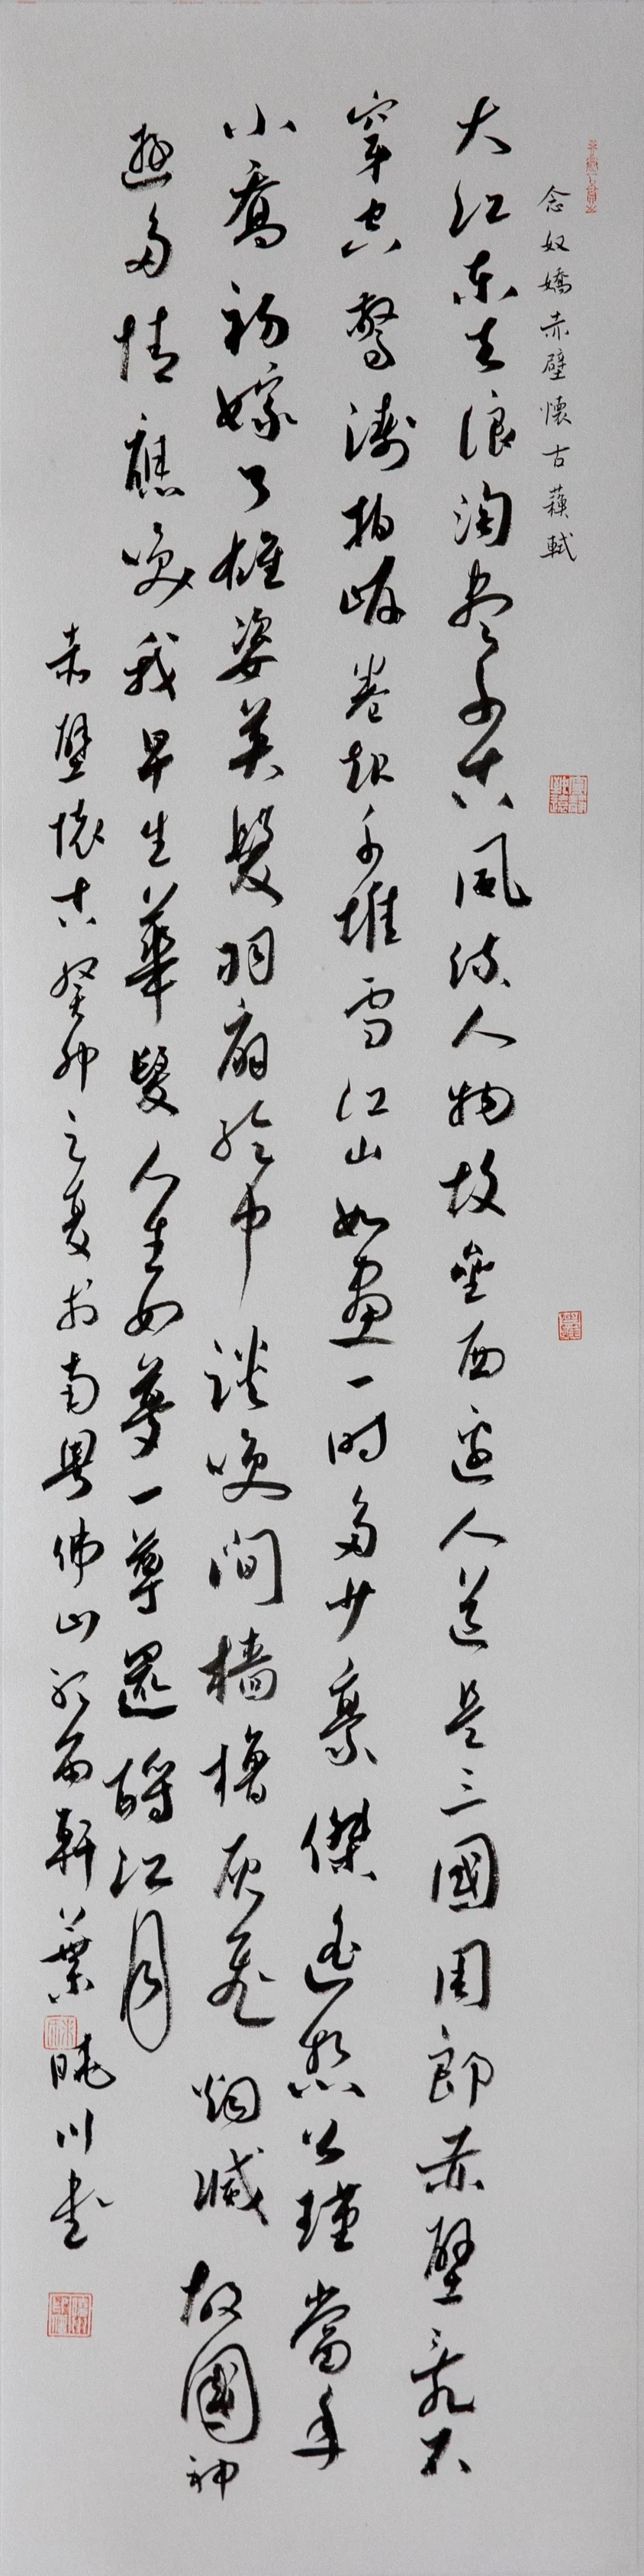 念奴嬌赤壁懷古蘇軾
大江東去浪淘盡千古風流人物故壘西邊人道是三國周郎赤壁亂石
穿空驚濤拍岸卷起千堆雪江山如畫一時多少豪傑遙想公瑾當年
小喬初嫁了雄姿英髮羽扇綸巾談笑間檣櫓灰飛烟滅故國神
遊多情應笑我早生華髮人生如夢一尊還酹江月
赤壁懷古癸卯之夏於南粵佛山 軒葉曉川書